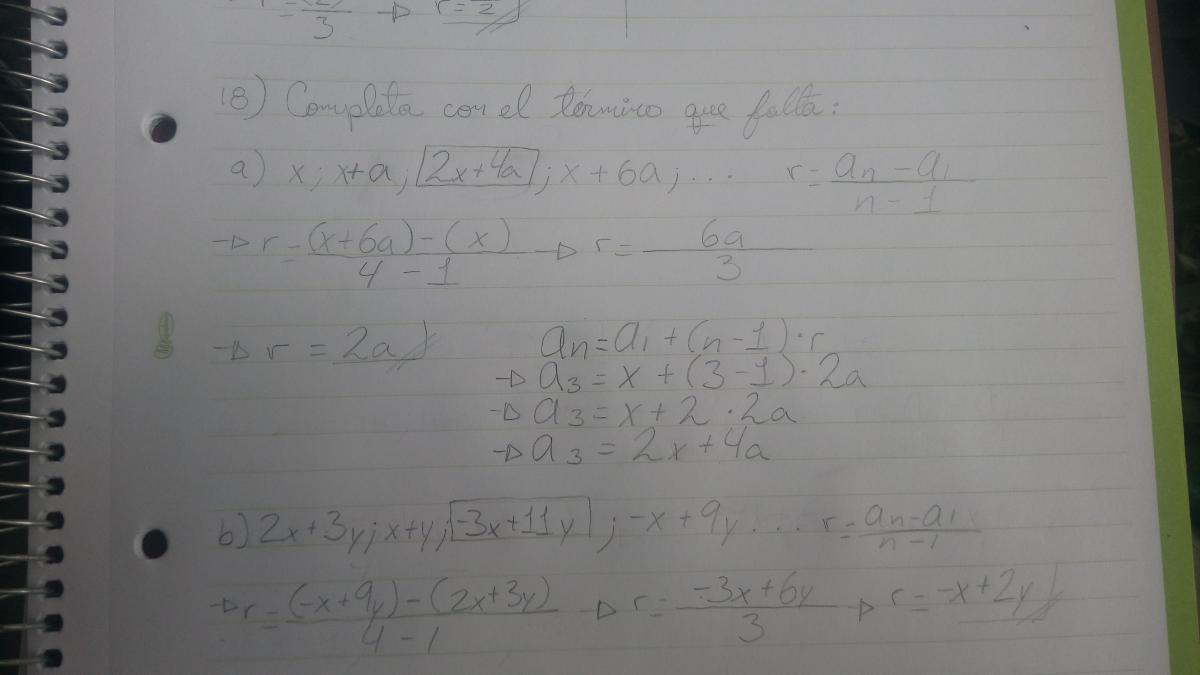 r = (2) / 3 → r =  / 2
18) Completa con el término que falta:
a) x; x+a; 2x+4a; x+6a; ... r = an - a1 / n - 1
→ r = (x+6a) - (x) / 4 - 1 → r = 6a / 3
→ r = 2a an = a1 + (n-1)·r
→ a3 = x + (3-1)·2a
→ a3 = x + 2·2a
→ a3 = 2x+4a
b) 2x+3y; x+y; -3x+11y; -x+9y ... r = an - a1 / n - 1
→ r = (-x+9y) - (2x+3y) / 4 - 1 → r = -3x+6y / 3 → r = -x+2y